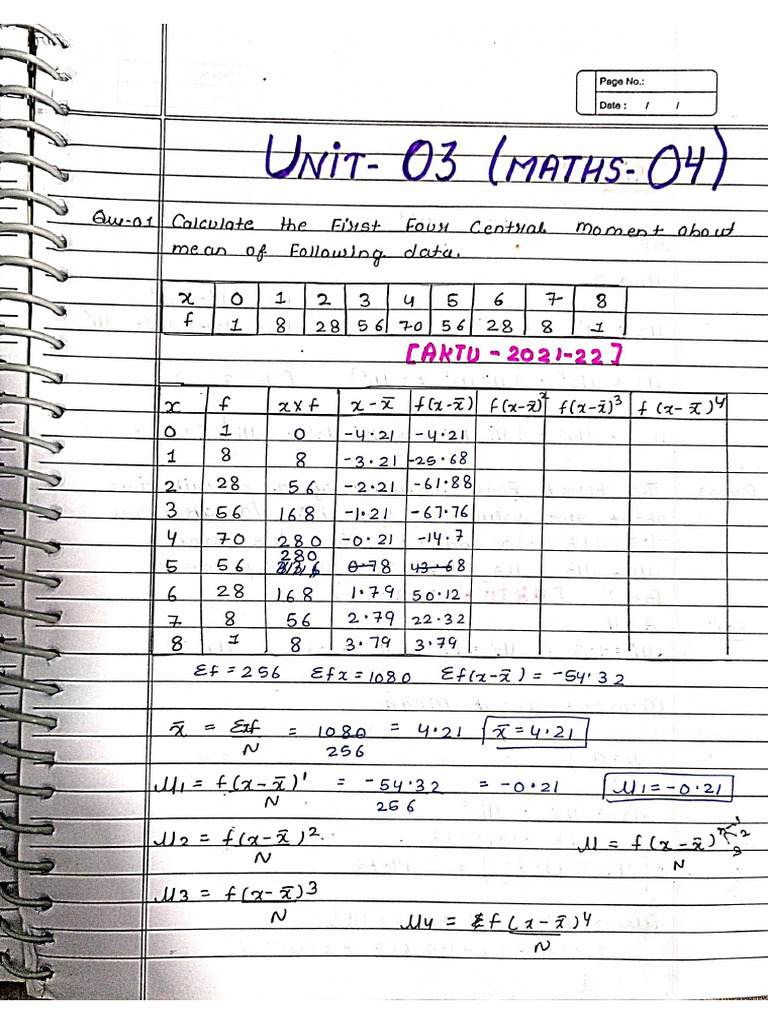 Page No.:
Date : / /
UNIT- 03 (MATHS-04)
Que-01 Calculate the First Four Central moment about
mean of Following data.
x 0 1 2 3 4 5 6 7 8
f 1 8 28 56 70 56 28 8 1
[AKTU - 2021-22]
x f x×f x-x̄ f(x-x̄) f(x-x̄)² f(x-x̄)³ f(x-x̄)⁴
0 1 0 -4.21 -4.21
1 8 8 -3.21 -25.68
2 28 56 -2.21 -61.88
3 56 168 -1.21 -67.76
4 70 280 -0.21 -14.7
280
5 56 0.78 43.68
6 28 168 1.79 50.12
7 8 56 2.79 22.32
8 1 8 3.79 3.79
Σf = 256 Σfx = 1080 Σf(x-x̄) = -54.32
x̄ = Σxf/N = 1080/256 = 4.21 x̄ = 4.21
μ1 = f(x-x̄)'/N = -54.32/256 = -0.21 μ1 = -0.21
μ2 = f(x-x̄)²/N μ = f(x-x̄)ⁿ/N 1 2 3
μ3 = f(x-x̄)³/N
μ4 = Σf(x-x̄)⁴/N